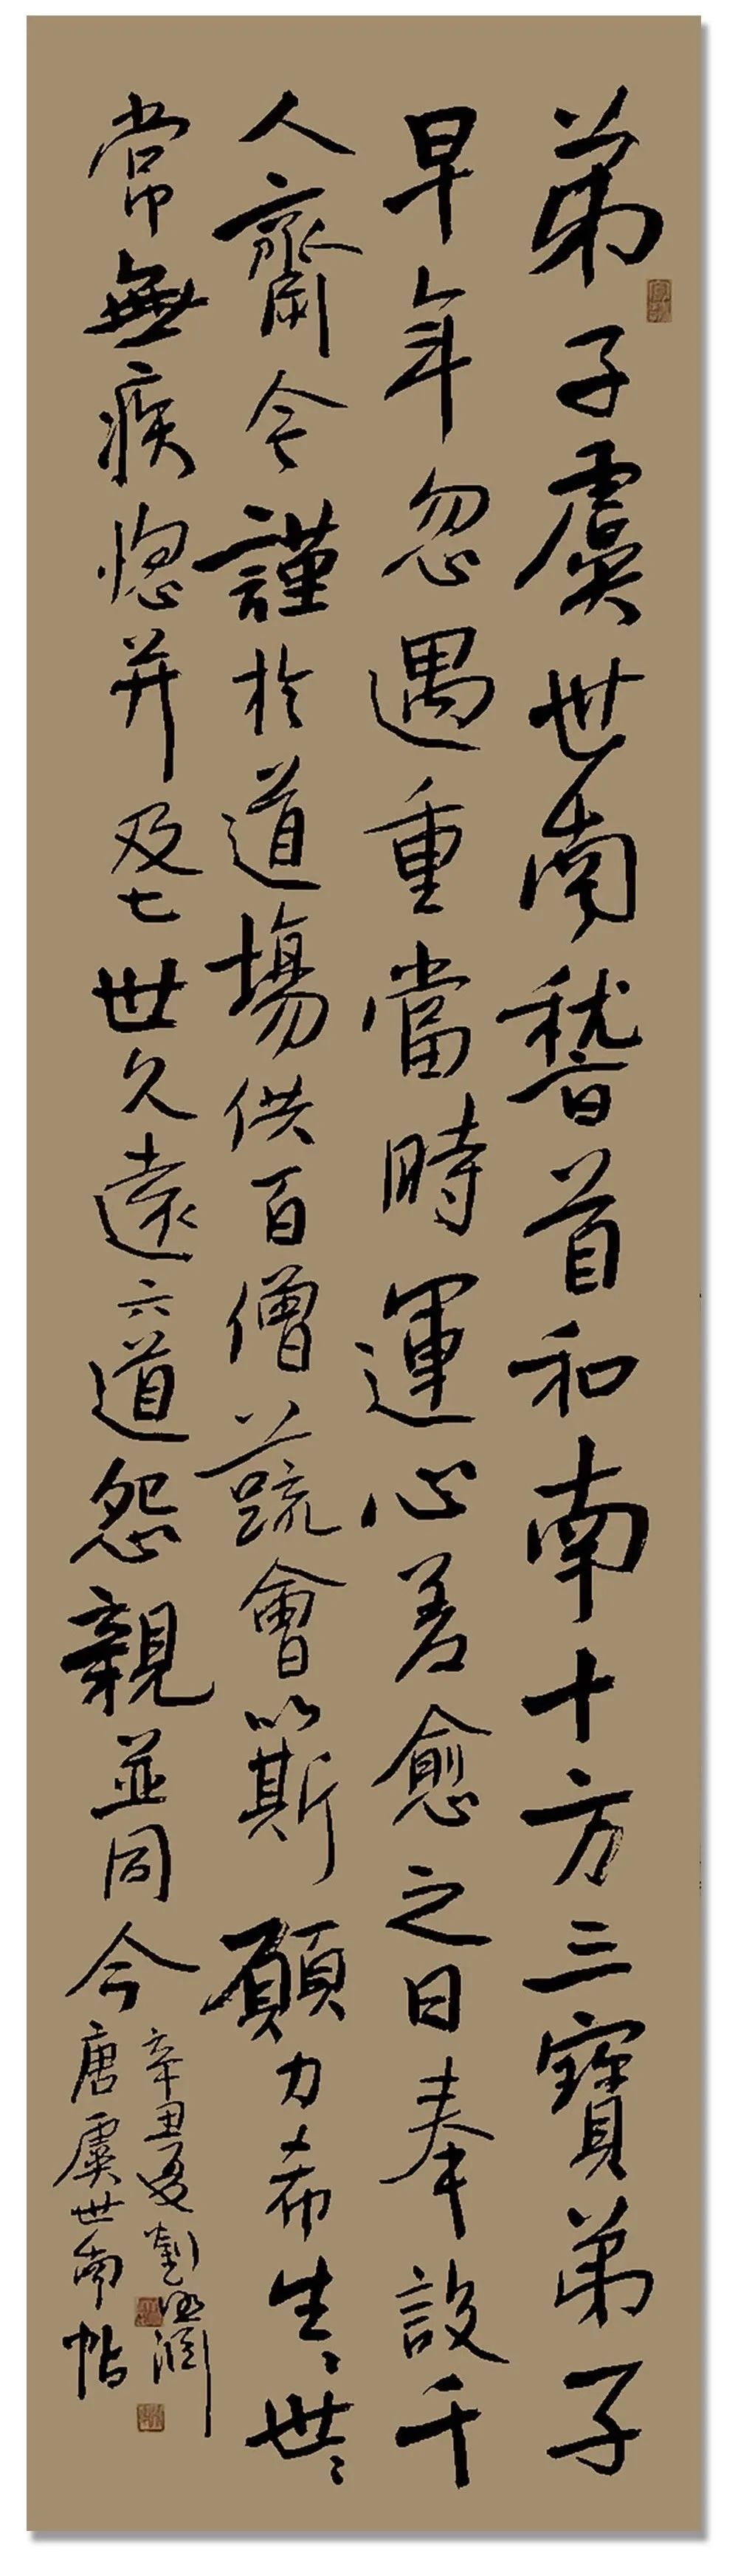 弟子虞世南稽首和南十方三寶弟子
早年忽遇重當時運心差愈之日奉設千
人齋今謹於道場供百僧蔬會以斯願力希生〻世〻
常無疾惱并及七世久遠六道怨親並同今
辛丑夏劉
唐虞世南帖